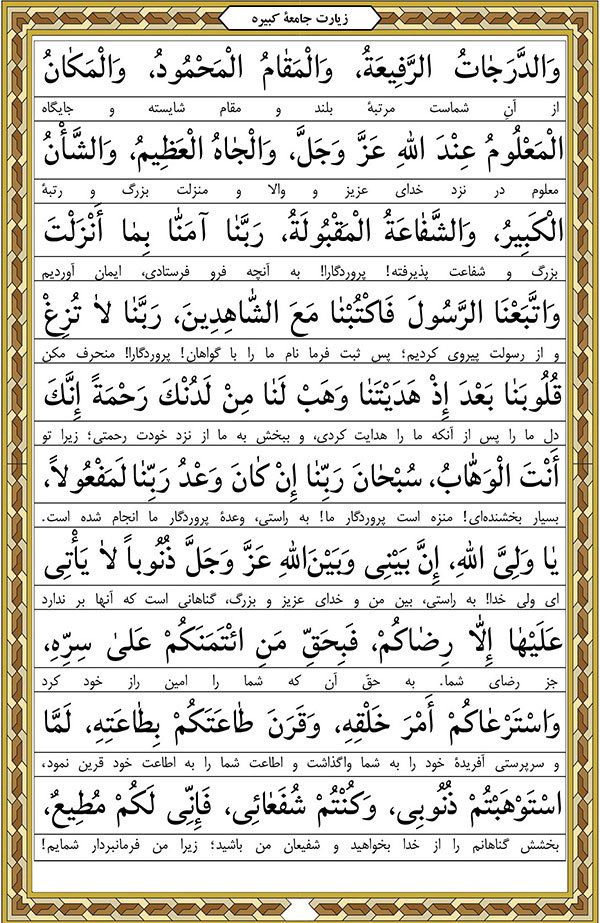 زیارت جامعهٔ کبیره
وَالدَّرَجٰاتُ الرَّفِیعَةُ، وَالْمَقٰامُ الْمَحْمُودُ، وَالْمَکٰانُ
از آنِ شماست مرتبهٔ بلند و مقام شایسته و جایگاه
الْمَعْلُومُ عِنْدَ اللهِ عَزَّ وَجَلَّ، وَالْجٰاهُ الْعَظِیمُ، وَالشَّأْنُ
معلوم در نزد خدای عزیز و والا و منزلت بزرگ و رتبهٔ
الْکَبِیرُ، وَالشَّفٰاعَةُ الْمَقْبُولَةُ، رَبَّنٰا آمَنّٰا بِمٰا أَنْزَلْتَ
بزرگ و شفاعت پذیرفته! پروردگارا! به آنچه فرو فرستادی، ایمان آوردیم
وَاتَّبَعْنَا الرَّسُولَ فَاکْتُبْنٰا مَعَ الشّٰاهِدِینَ، رَبَّنٰا لاٰ تُزِغْ
و از رسولت پیروی کردیم؛ پس ثبت فرما نام ما را با گواهان! پروردگارا! منحرف مکن
قُلُوبَنٰا بَعْدَ إِذْ هَدَیْتَنٰا وَهَبْ لَنٰا مِنْ لَدُنْكَ رَحْمَةً إِنَّكَ
دل ما را پس از آنکه ما را هدایت کردی، و ببخش به ما از نزد خودت رحمتی؛ زیرا تو
أَنْتَ الْوَهّٰابُ، سُبْحٰانَ رَبِّنٰا إِنْ کٰانَ وَعْدُ رَبِّنٰا لَمَفْعُولاً،
بسیار بخشنده‌ای! منزه است پروردگار ما! به راستی، وعدهٔ پروردگار ما انجام شده است.
یٰا وَلِیَّ اللهِ، إِنَّ بَیْنِی وَبَیْنَ‌اللهِ عَزَّ وَجَلَّ ذُنُوباً لاٰ یَأْتِی
ای ولی خدا! به راستی، بین من و خدای عزیز و بزرگ، گناهانی است که آنها بر ندارد
عَلَیْهٰا إِلّٰا رِضٰاکُمْ، فَبِحَقِّ مَنِ ائْتَمَنَکُمْ عَلیٰ سِرِّهِ،
جز رضای شما. به حقّ آن که شما را امین راز خود کرد
وَاسْتَرْعٰاکُمْ أَمْرَ خَلْقِهِ، وَقَرَنَ طٰاعَتَکُمْ بِطٰاعَتِهِ، لَمَّا
و سرپرستی آفریدهٔ خود را به شما واگذاشت و اطاعت شما را به اطاعت خود قرین نمود،
اسْتَوْهَبْتُمْ ذُنُوبِی، وَکُنْتُمْ شُفَعٰائِی، فَإِنِّی لَکُمْ مُطِیعٌ،
بخشش گناهانم را از خدا بخواهید و شفیعان من باشید؛ زیرا من فرمانبردار شمایم!